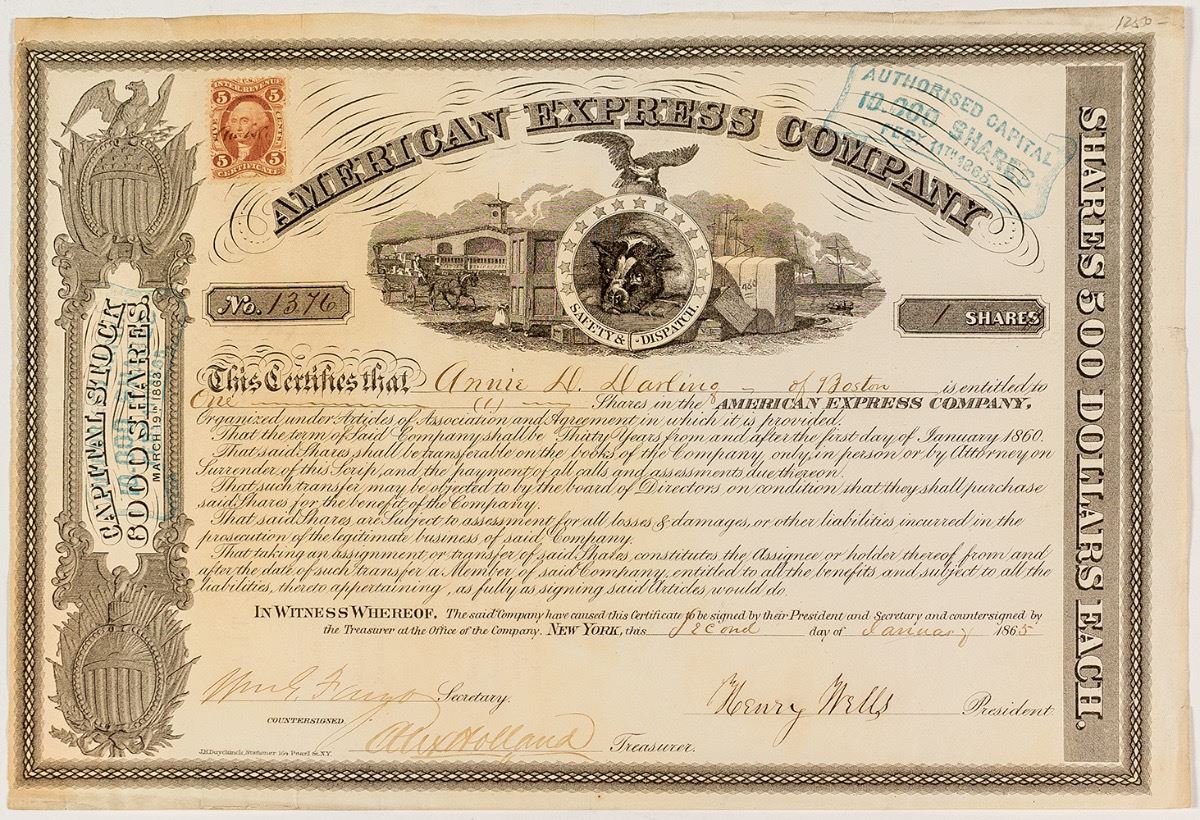 1250-
AMERICAN EXPRESS COMPANY
AUTHORISED CAPITAL
10.000 SHARES
FEBY. 11TH 1865.
U.S. INTER. REVENUE
5 5
FIVE CENTS
5 5
CERTIFICATE
SAFETY & DISPATCH
No. 1376
1 SHARES
CAPITAL STOCK
6000 SHARES.
MARCH 19TH 1863.
SHARES 500 DOLLARS EACH.
This Certifies that Annie D. Darling - of Boston is entitled to
One (1) Shares in the AMERICAN EXPRESS COMPANY,
Organized under Article of Association and Agreement in which it is provided.
That the term of Said Company shall be Thirty Years from and after the first day of January 1860.
That said Shares shall be transferable on the books of the Company, only, in person or by Attorney on
Surrender of this Scrip and the payment of all calls and assessments due thereon.
That such transfer may be objected to by the board of Directors, on condition that they shall purchase
said Shares for the benefit of the Company.
That said Shares are subject to assessment for all losses & damages, or other liabilities incurred in the
prosecution of the legitimate business of said Company.
That taking an assignment or transfer of said Shares constitutes the Assignee or holder thereof from and
after the date of such transfer a Member of said Company, entitled to all the benefits and subject to all the
liabilities, thereto appertaining, as fully as signing said Articles would do.
IN WITNESS WHEREOF. The said Company have caused this Certificate to be signed by their President and Secretary and countersigned by
the Treasurer at the Office of the Company. NEW YORK, this Second day of January 1865
Wm G. Fargo Secretary.
Henry Wells President.
COUNTERSIGNED.
Alex Holland Treasurer.
J.H. Duyckinck, Stationer 164 Pearl St. N.Y.